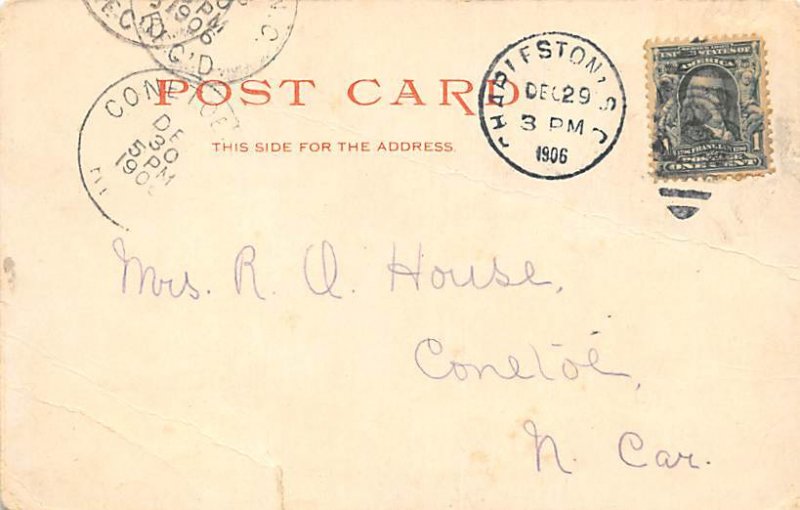 N.C.
PM
1906
REC'D.
POST CARD
THIS SIDE FOR THE ADDRESS.
CONETOE
DEC
30
5 PM
190
CHARLESTON, S.C.
DEC 29
3 PM
1906
SERIES 1902
UNITED STATES OF
AMERICA
1 FRANKLIN 1
ONE CENT
Mrs. R. Q. House,
Conetoe,
N. Car.